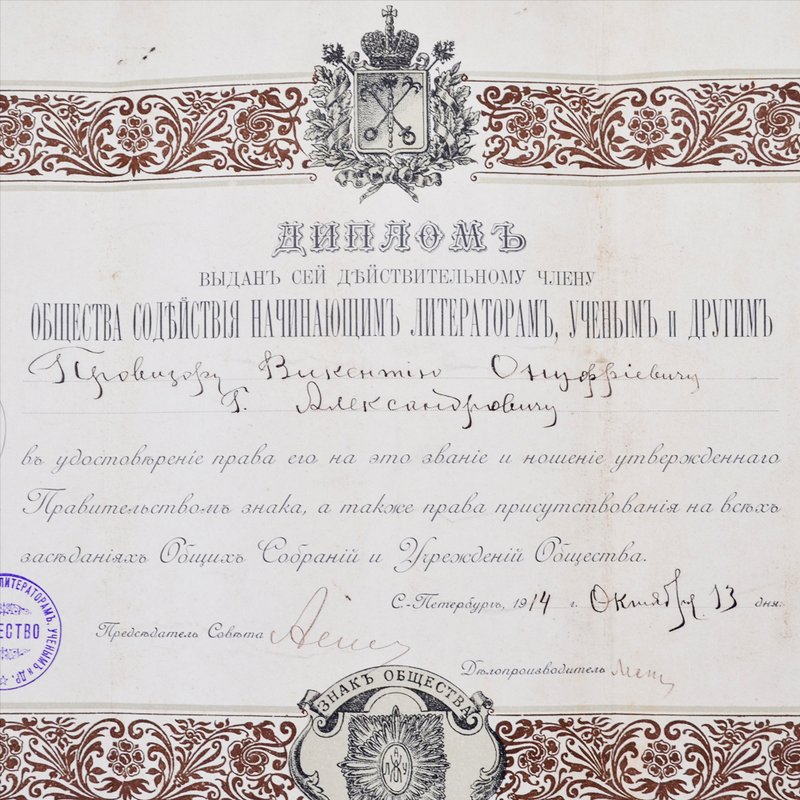 ДИПЛОМЪ
ВЫДАНЪ СЕЙ ДѢЙСТВИТЕЛЬНОМУ ЧЛЕНУ
ОБЩЕСТВА СОДѢЙСТВІЯ НАЧИНАЮЩИМЪ ЛИТЕРАТОРАМЪ, УЧЕНЫМЪ и ДРУГИМЪ
Провизору Викентію Онуфріевичу
Г. Александровичу
въ удостовѣреніе права его на это званіе и ношеніе утвержденнаго
Правительствомъ знака, а также права присутствованія на всѣхъ
засѣданіяхъ Общихъ Собраній и Учрежденій Общества.
С.-Петербургъ, 1914 г. Октября 13 дня.
Предсѣдатель Совѣта
Дѣлопроизводитель
ЛИТЕРАТОРАМЪ, УЧЕНЫМЪ и ДР.
ЕСТВО
ЗНАКЪ ОБЩЕСТВА